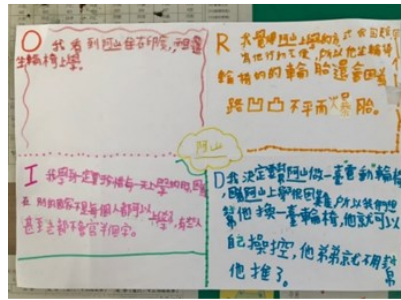 O 我看到阿山住在印度,他是
坐輪椅上學。
R 我覺得阿山上學的方式會因
為他行動不便,所以他坐輪椅
輪椅的輪胎還會因為
路凹凸不平而爆胎。
阿山
I 我學到一定要珍惜每一天上學的時間,因為
在別的國家不是每個人都可以上學,有些人
甚至連字都不會寫半個字。
D 我決定幫阿山做一臺電動輪椅,
因為阿山上學很困難,所以我們想
幫他換一臺輪椅,他就可以
自己操控,他弟弟就不用幫
他推了。